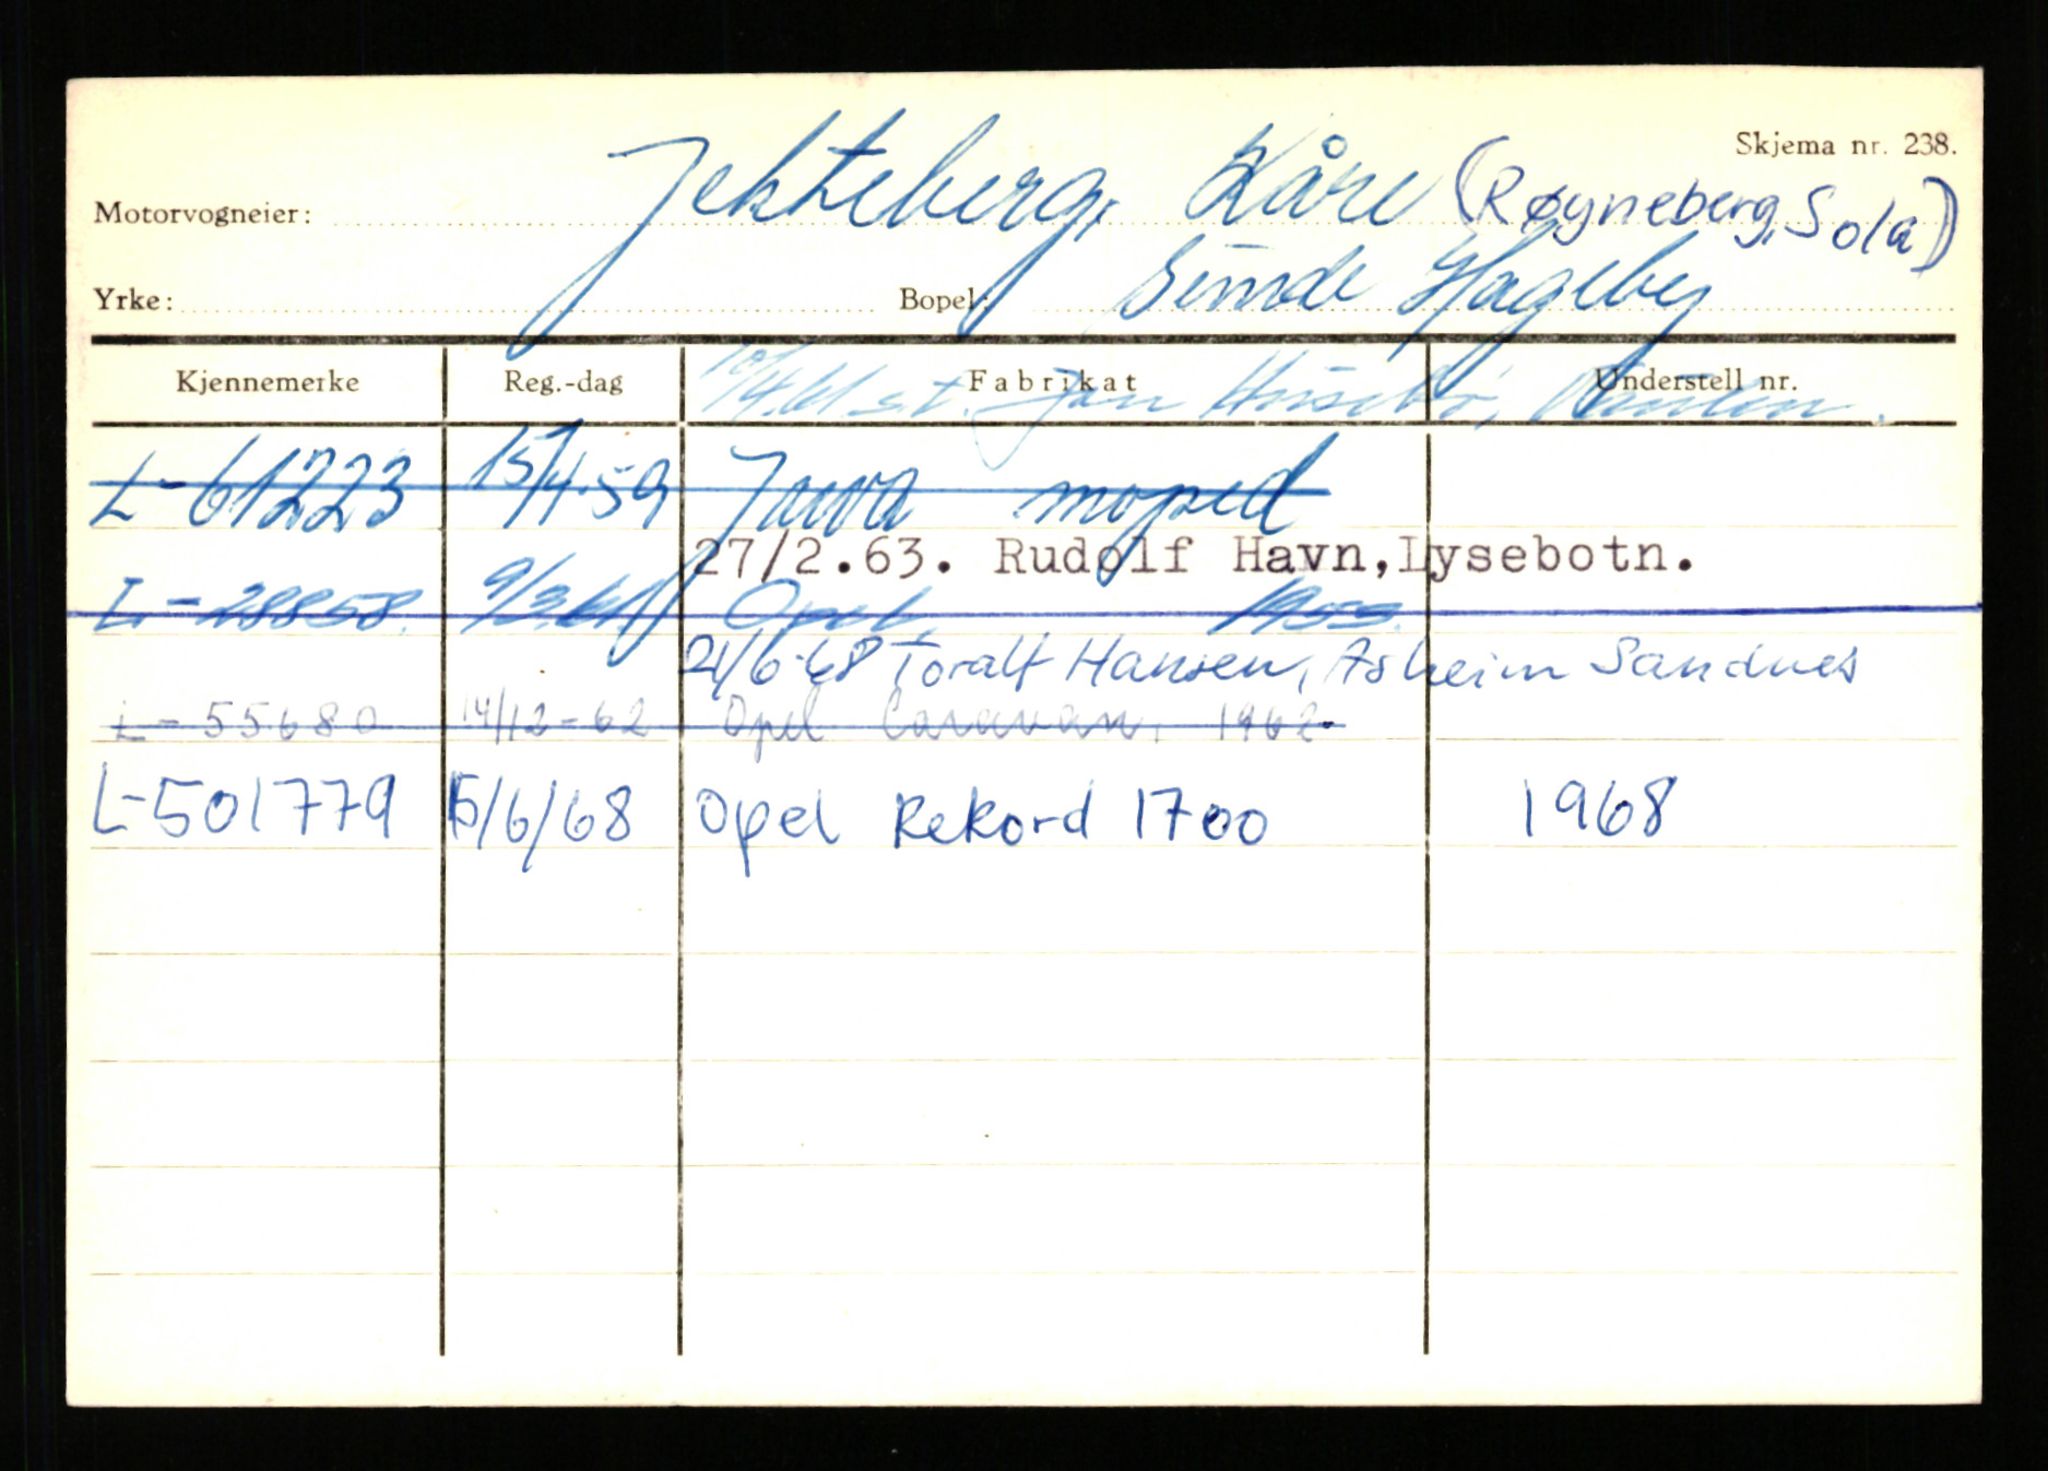 Skjema nr. 238.
Motorvogneier: Jekteberg, Kåre (Røyneberg, Sola)
Yrke: Bopel: Sunde Hageby
Kjennemerke Reg.-dag Fabrikat Understell nr.
10/4.61 s.t. Jan Husebø,
L-61223 15/4.59 Jawa moped
27/2.63. Rudolf Havn, Lysebotn.
L-28858. 9/3.61 Opel,
21/6-68 Toralf Hansen, Asheim Sandnes
L-55680 14/12-62 Opel Caravan, 1962
L-501779 15/6/68 Opel Rekord 1700 1968